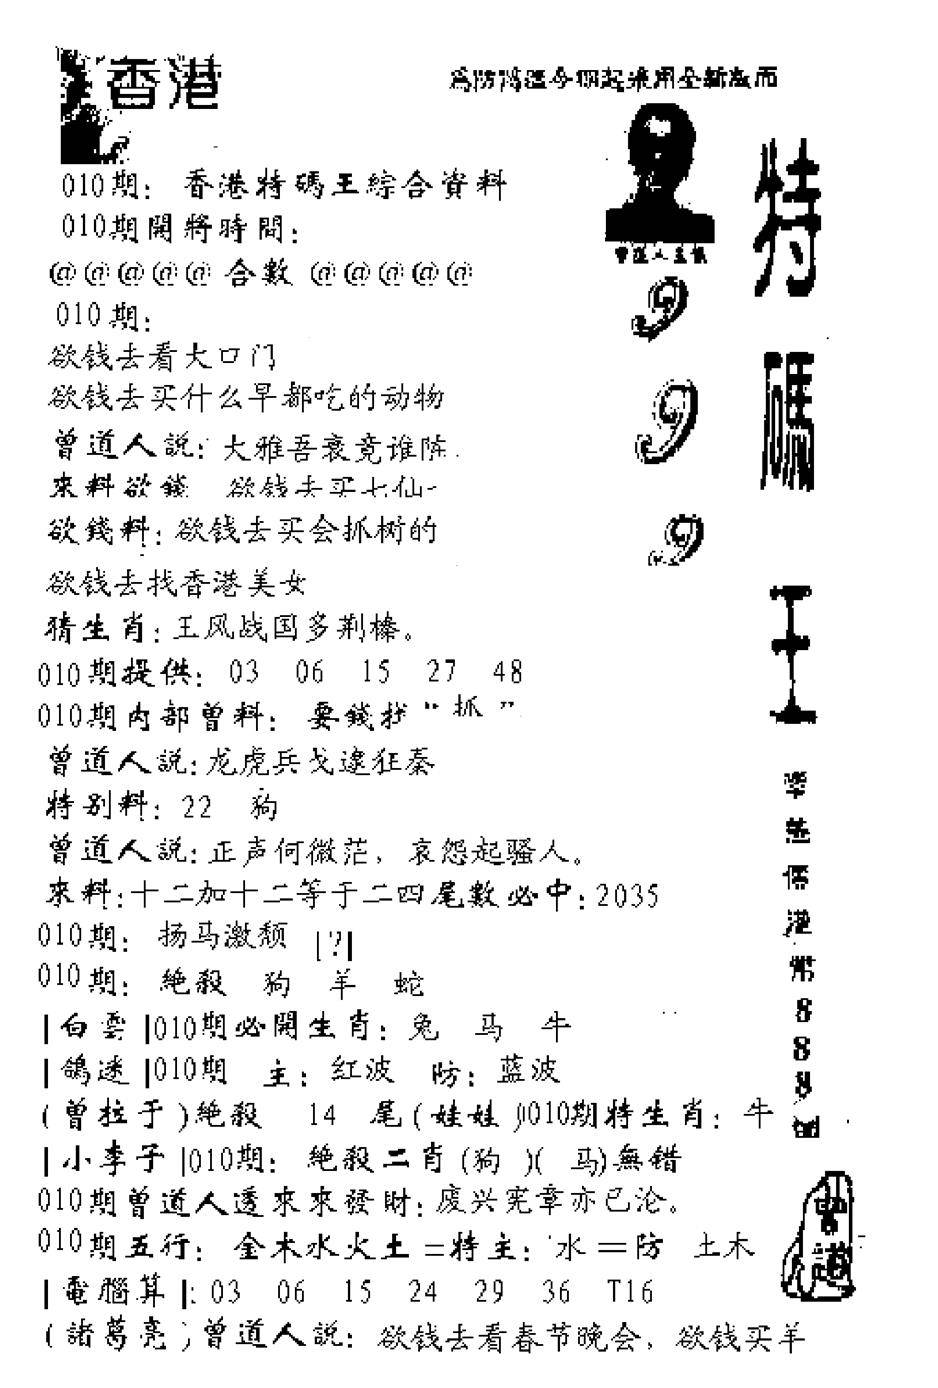 香港
為防偽從今期起采用全新版面
010期: 香港特碼王綜合資料
010期開將時間:
@@@@@ 合數 @@@@@
010期:
欲钱去看大口门
欲钱去买什么早都吃的动物
曾道人説: 大雅吾衰竞谁陈.
來料欲錢 欲钱去买七仙
欲錢料: 欲钱去买会抓树的
欲钱去找香港美女
猜生肖: 王风战国多荆榛。
010期提供: 03 06 15 27 48
010期内部曾料: 要錢找“抓”
曾道人説: 龙虎兵戈逮狂秦
特别料: 22 狗
曾道人説: 正声何微茫，哀怨起骚人。
來料: 十二加十二等于二四尾數必中: 2035
010期: 扬马激颓 [?]
010期: 絶殺 狗 羊 蛇
|白雲|010期必開生肖: 兔 马 牛
|鴿迷|010期 主: 红波 防: 蓝波
(曾拉于)絶殺 14 尾(娃娃)010期特生肖: 牛
|小李子|010期: 絶殺二肖(狗 )( 马)無错
010期曾道人透來來發財: 废兴宪章亦已沦。
010期五行: 金木水火土=特主: 水=防 土木
|電腦算|: 03 06 15 24 29 36 T16
(諸葛亮)曾道人説: 欲钱去看春节晚会，欲钱买羊
曾道人主儀
9
9
9
特碼王
港幣888
曾道